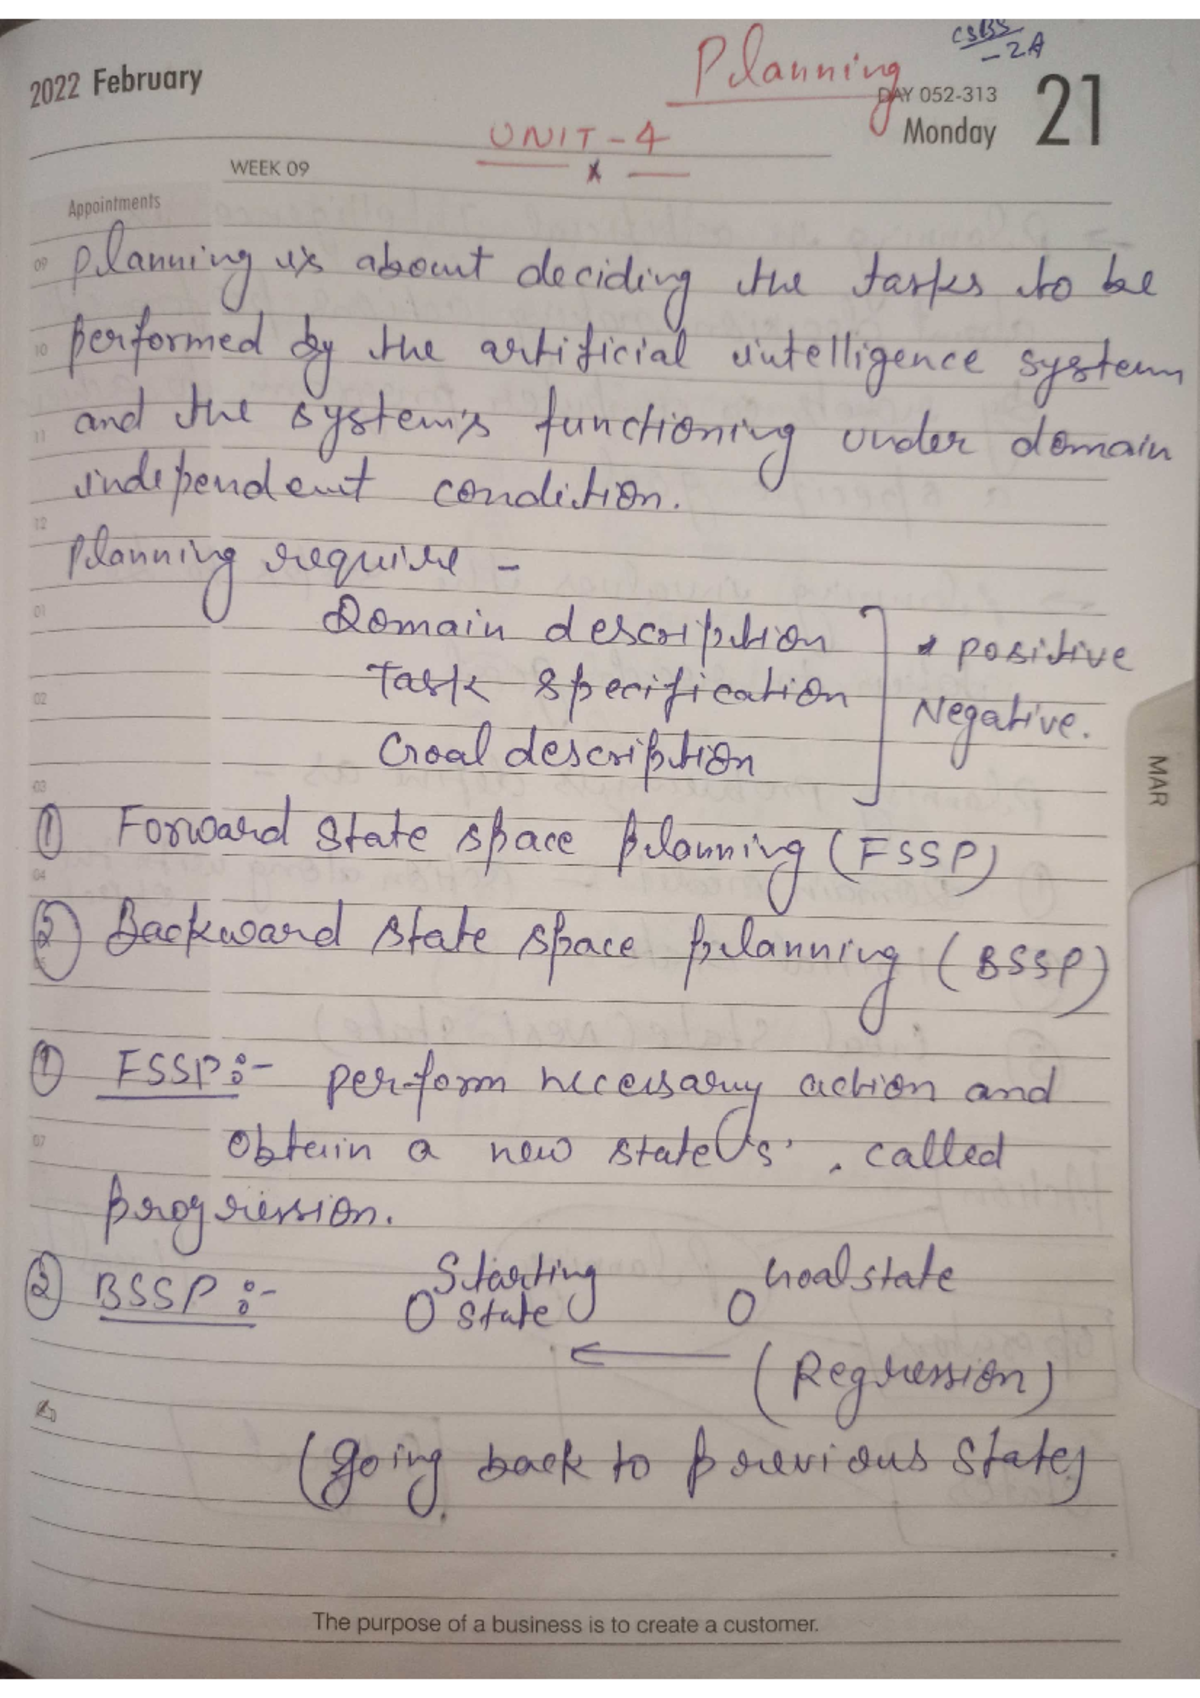 CSBS
-2A
Planning
2022 February
DAY 052-313
21
Monday
UNIT-4
x
WEEK 09
Appointments
09 Planning is about deciding the tasks to be
10 performed by the artificial intelligence system
11 and the system's functioning under domain
independent condition.
12
Planning require -
01
Domain description
* positive
Task specification
02
Negative.
Goal description
MAR
03
① Forward state space planning (FSSP)
04
② Backward state space planning (BSSP)
① FSSP:- perform necessary action and
07
obtain a new state 's'. called
progression.
② BSSP :- O Starting state O Goal state
←
(Regression)
(going back to previous state)
The purpose of a business is to create a customer.